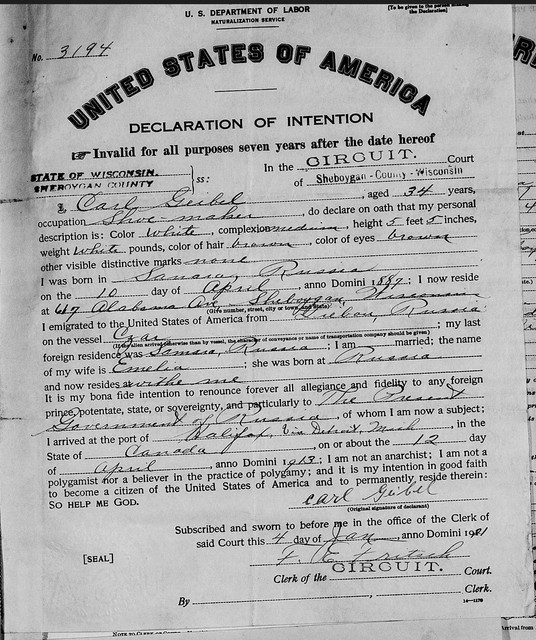 U. S. DEPARTMENT OF LABOR
NATURALIZATION SERVICE
[To be given to the person making
the Declaration]
No. 3194
UNITED STATES OF AMERICA
DECLARATION OF INTENTION
☞ Invalid for all purposes seven years after the date hereof
STATE OF WISCONSIN.
SHEBOYGAN COUNTY
ss:
In the CIRCUIT. Court
of Sheboygan-County-Wisconsin
I, Carl Geibel, aged 34 years,
occupation Shoe-maker, do declare on oath that my personal
description is: Color White, complexion medium, height 5 feet 5 inches,
weight pounds, color of hair brown, color of eyes brown
other visible distinctive marks none
I was born in Russia
on the 10 day of April, anno Domini 1887; I now reside
at 617 Alabama Ave Sheboygan, Wisconsin
(Give number, street, city or town, and State)
I emigrated to the United States of America from Libau, Russia
on the vessel Czar; my last
(If the alien arrived otherwise than by vessel, the character of conveyance or name of transportation company should be given)
foreign residence was Samara, Russia; I am married; the name
of my wife is Emelia; she was born at Russia
and now resides with me
It is my bona fide intention to renounce forever all allegiance and fidelity to any foreign
prince, potentate, state, or sovereignty, and particularly to The Present
Government of Russia, of whom I am now a subject;
I arrived at the port of Halifax, via Detroit, Mich, in the
State of Canada, on or about the 12 day
of April, anno Domini 1913; I am not an anarchist; I am not a
polygamist nor a believer in the practice of polygamy; and it is my intention in good faith
to become a citizen of the United States of America and to permanently reside therein:
SO HELP ME GOD.
Carl Geibel
(Original signature of declarant)
Subscribed and sworn to before me in the office of the Clerk of
said Court this 4 day of Jan, anno Domini 1921
[SEAL]
Clerk of the CIRCUIT. Court.
By , Clerk.
14—1178
NOTE TO CLERK OF
arrival from